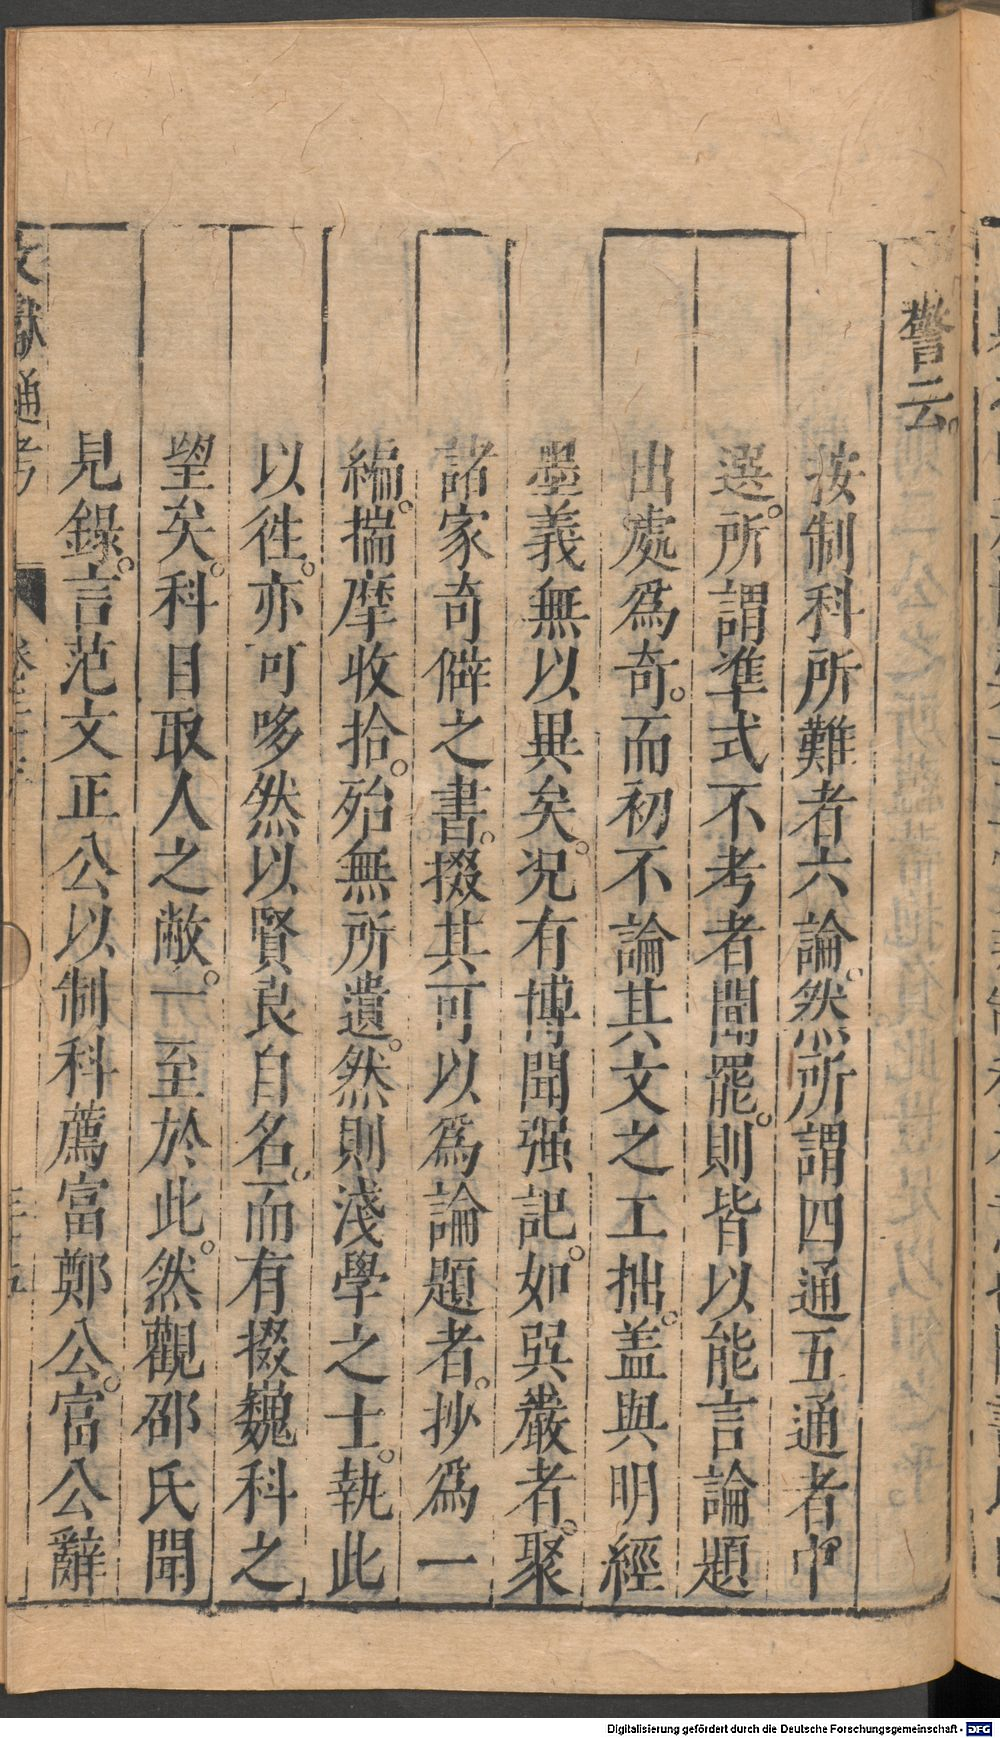 警云。
按制科所難者六論。然所謂四通五通者中
選。所謂準式不考者聞罷。則皆以能言論題
出處爲奇。而初不論其文之工拙。盖與明經
墨義無以異矣。况有博聞强記。如巽巖者。聚
諸家奇僻之書。掇其可以爲論題者。抄爲一
編。揣摩收拾。殆無所遺。然則淺學之士。執此
以徃。亦可哆然以賢良自名。而有掇巍科之
望矣。科目取人之敝。一至於此。然觀邵氏聞
見錄。言范文正公以制科薦富鄭公。富公辭
文獻通考
Digitalisierung gefördert durch die Deutsche Forschungsgemeinschaft - DFG